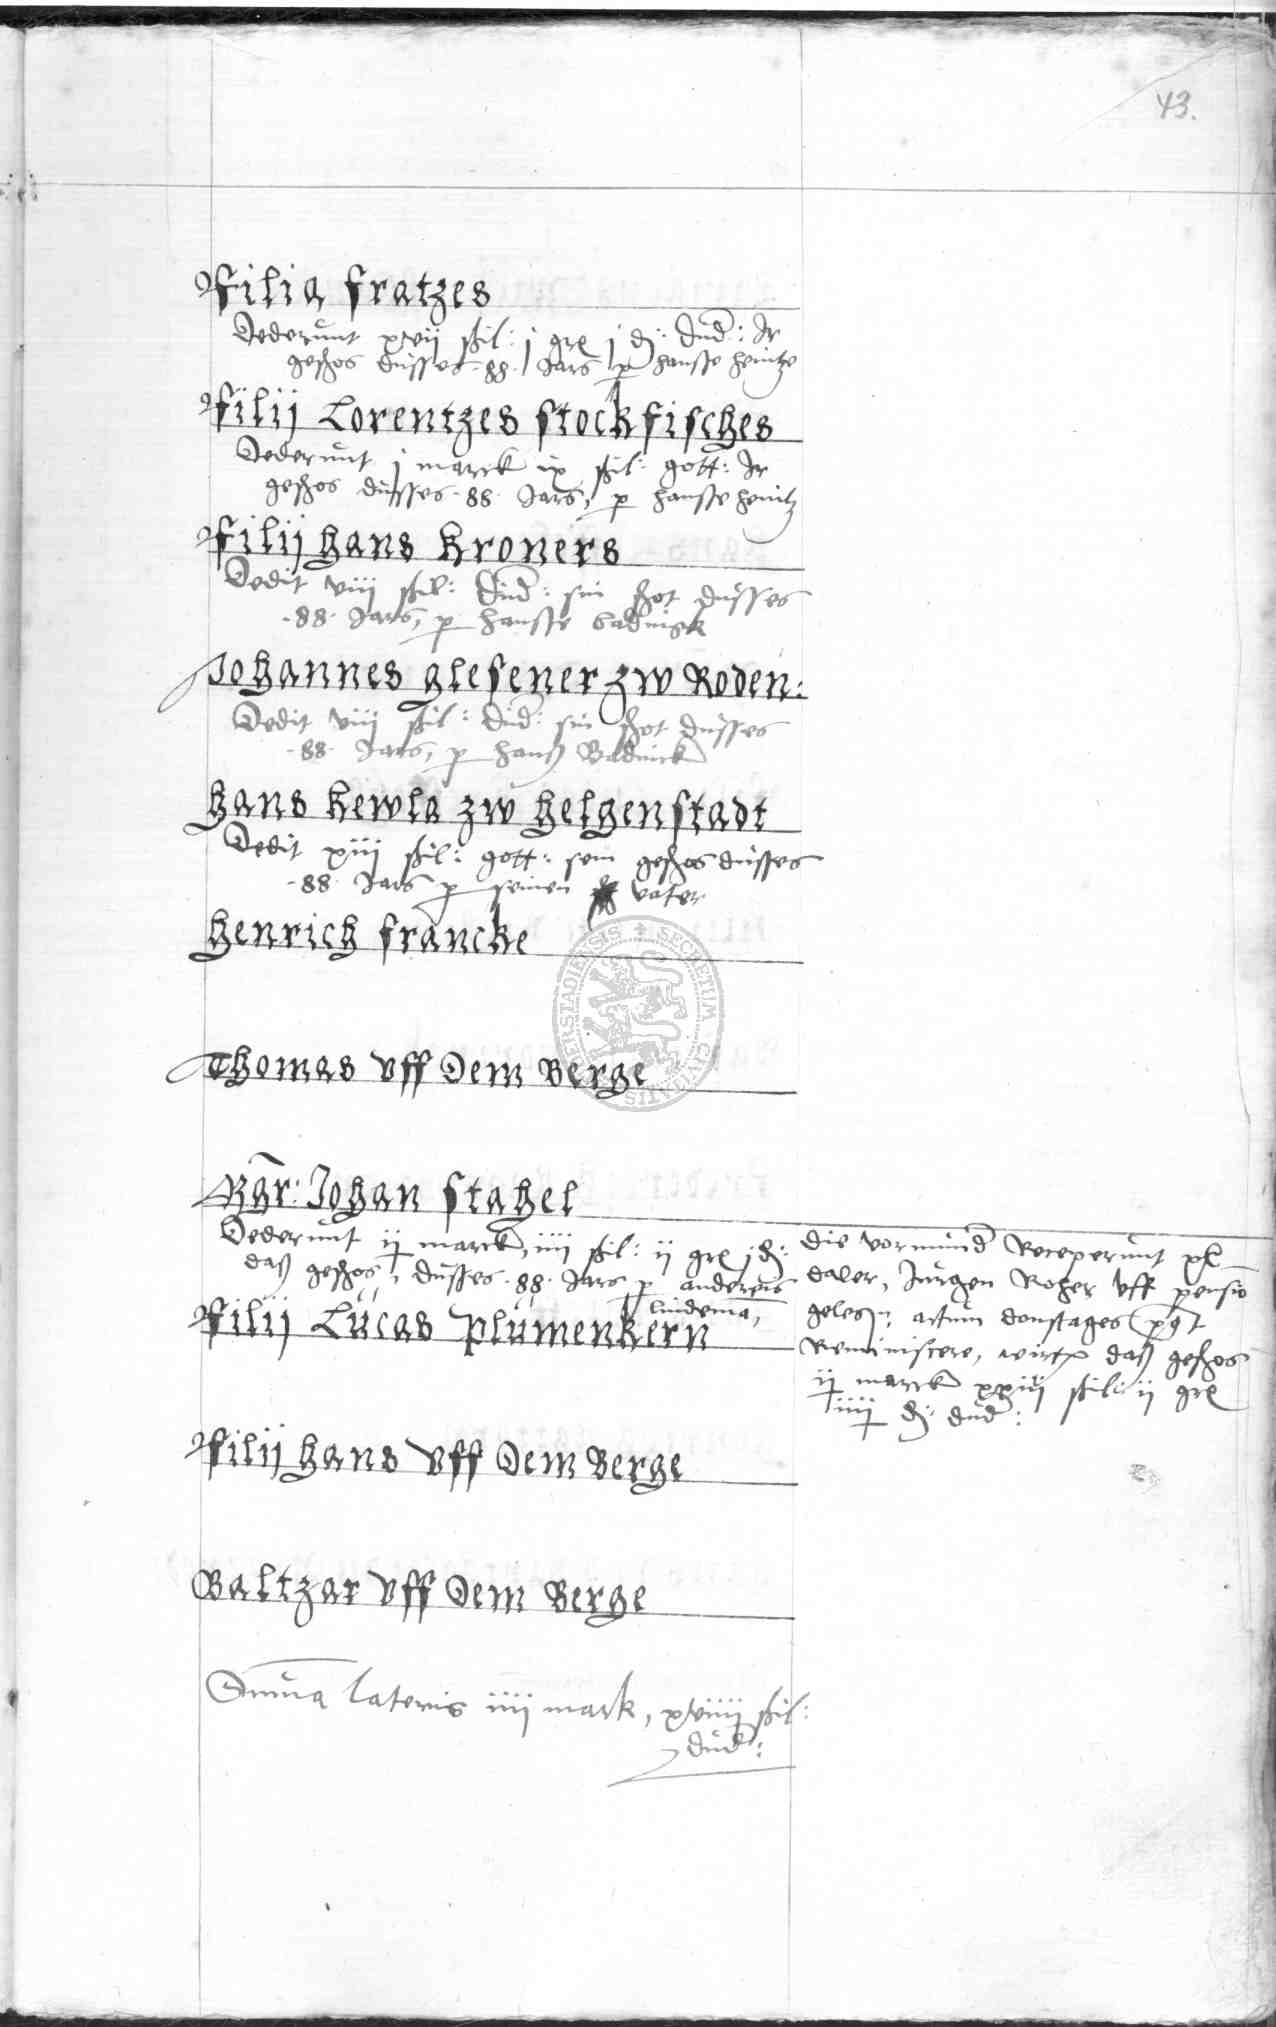 43.
Filia Fratzes
Dederunt xvii ßil: j gr j d: dud: Ir
geschos dusses 88 Jars p hansse heintze
Filij Lorentzes Stockfisches
Dederunt j marck ix ßil: gott: Ir
geschos dusses 88 Jars, p hansse heintz
Filij Hans Kroners
Dedit viii ßil: Dud: sin schot dusses
88 Jars, p hansse
Johannes Glesener zw Roden:
Dedit viii ßil: Dud: sin schot dusses
88 Jars, p hanß
Hans Kewla zw Helgenstadt
Dedit xiii ßil: gott: sein geschos dusses
88 Jars p seinen vater
Henrich Francke
Thomas uff dem Berge
Johan Stahel
Dederunt ij marck, iiii ßil: ij gr j d:
daß geschos, dusses 88 Jars p anderens
lindema,
Filij Lucas Plumenkern
die vormund Receperunt
daler, Jurgen Roher uff pensio
gelesn, actum donstages
Reminiscere, daß geschos
ij marck xxiii ßil: ij gr
iiii d: dud:
Filij Hans uff dem Berge
Baltzar uff dem Berge
Suma lateris iiii mark, xviiii ßil:
dud:
SECRETUM CIVITATIS DERSTADIENSIS